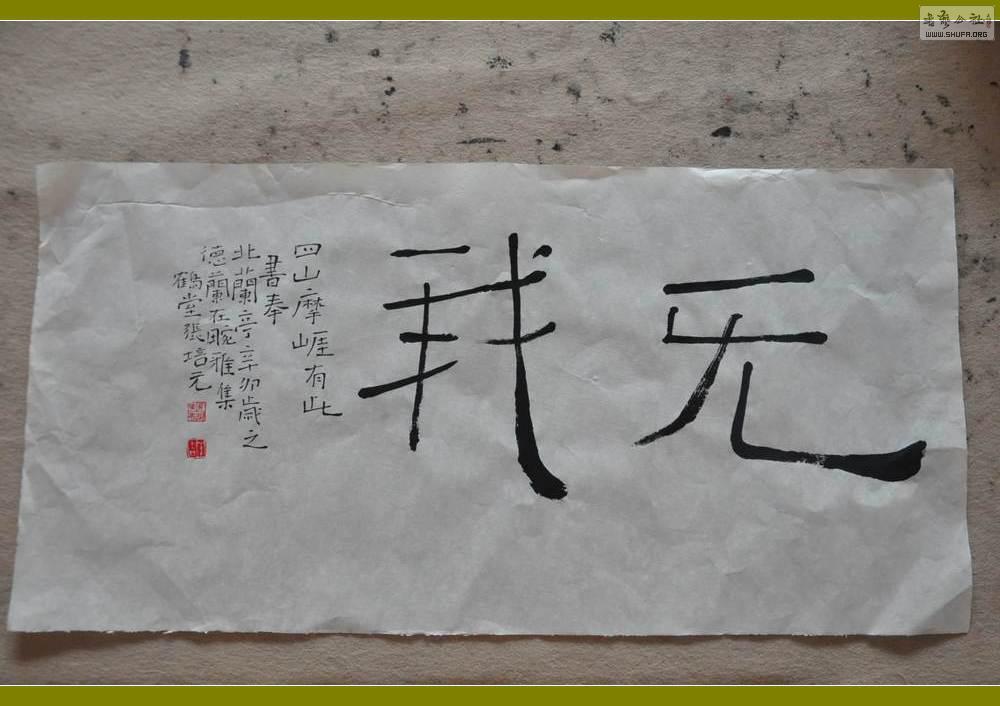 无我
四山摩崖有此
書奉
北蘭亭辛卯歲之
德蘭在腕雅集
鶴堂張培元
書藝公社
WWW.SHUFA.ORG